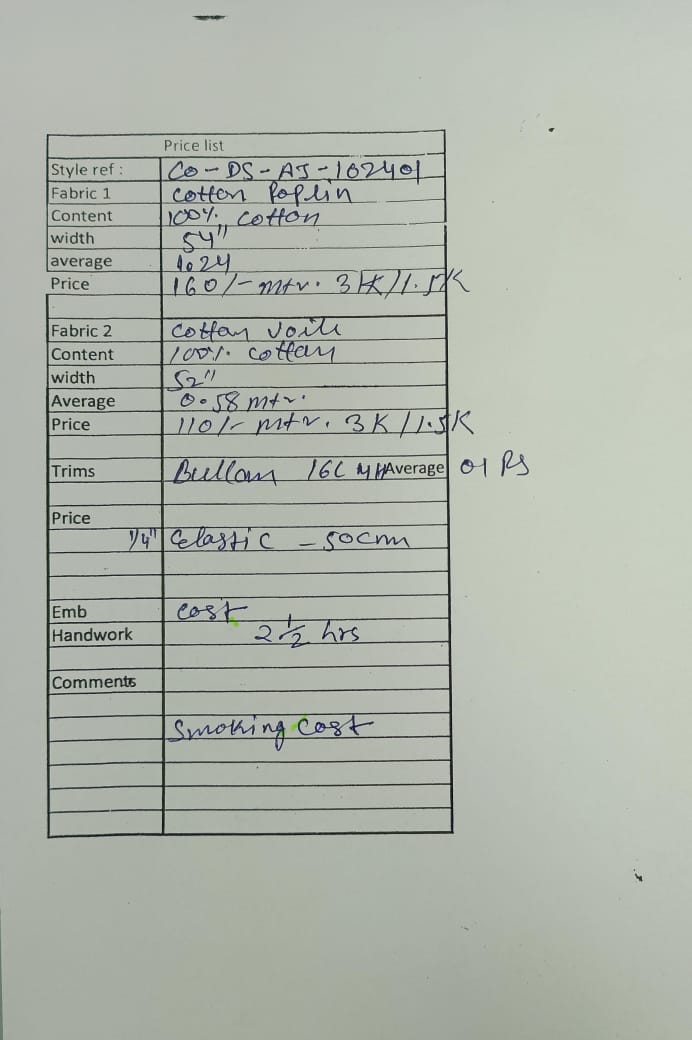 Price list
Style ref : Co-DS-AJ-102401
Fabric 1 Cotton Poplin
Content 100% Cotton
width 54"
average 1.24
Price 160/- mtr. 3K/1.5K
Fabric 2 Cotton Voile
Content 100% cottan
width 52"
Average 0.58 mtr.
Price 110/- mtr. 3K/1.5K
Trims 16L Average 01 Ps
Price
1/4" Elastic - 50cm
Emb cost
Handwork 2 1/2 hrs
Comments
Smoking cost